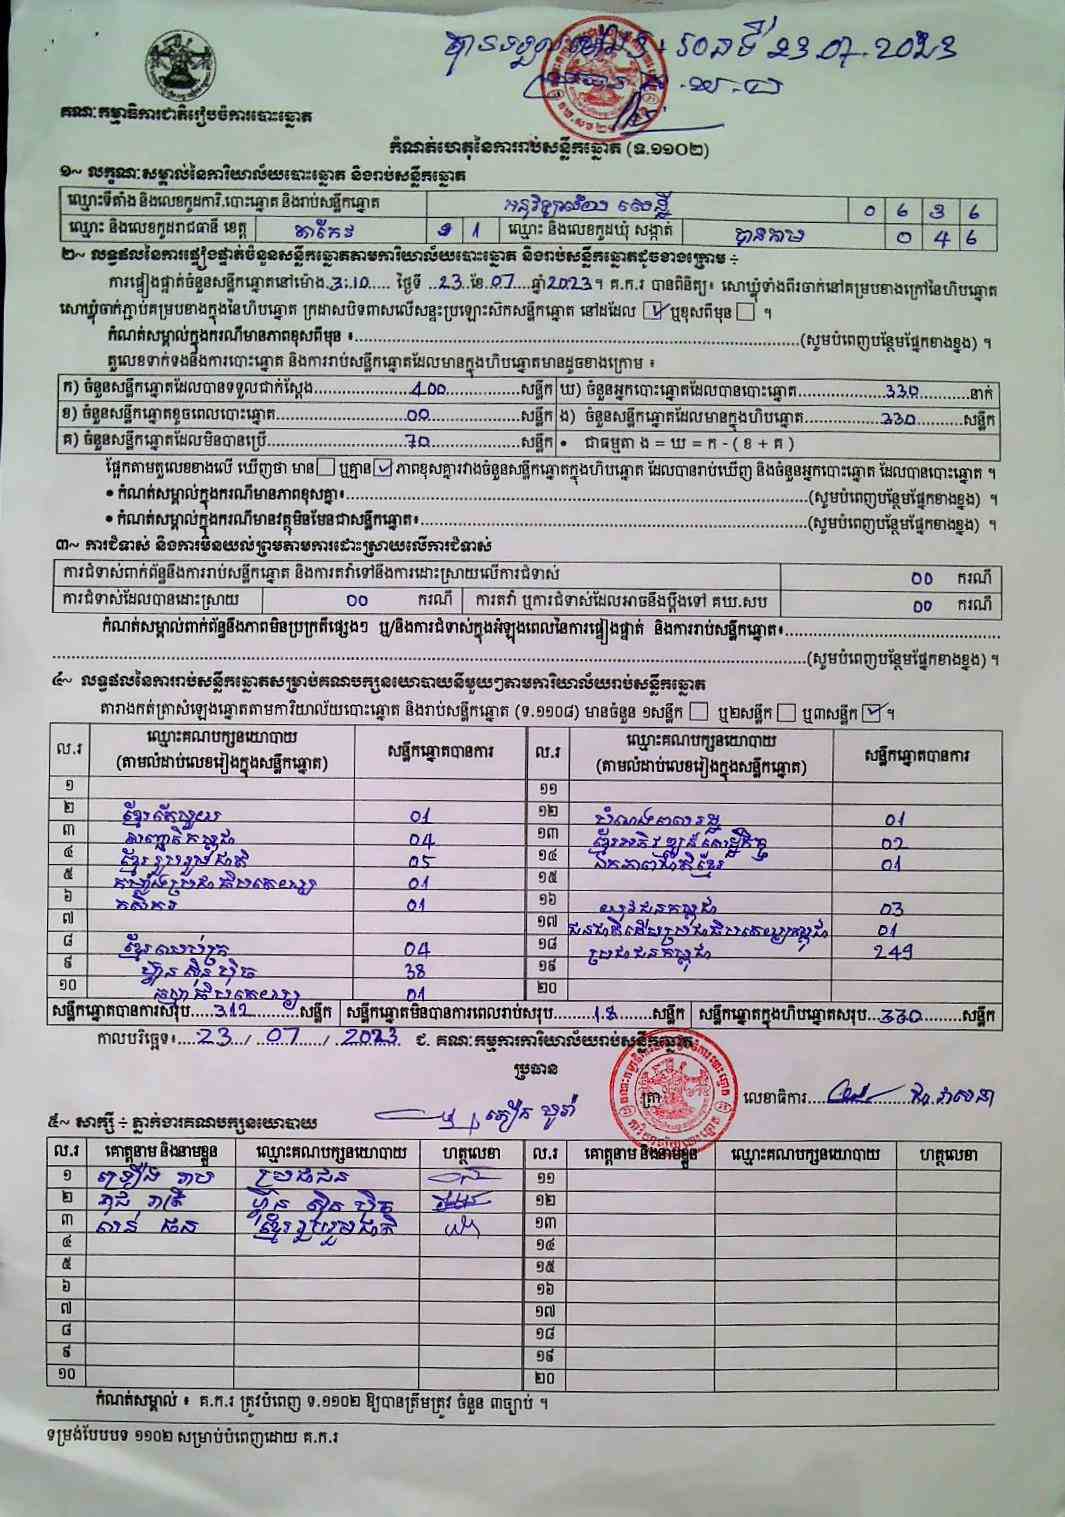 បានទទួលម៉ោង 3:50នាទី 23.07.2023
គណៈកម្មាធិការជាតិរៀបចំការបោះឆ្នោត
កំណត់ហេតុនៃការរាប់សន្លឹកឆ្នោត (ទ.១១០២)
១~ លក្ខណៈសម្គាល់នៃការិយាល័យបោះឆ្នោត និងរាប់សន្លឹកឆ្នោត
ឈ្មោះទីតាំង និងលេខកូដការិ.បោះឆ្នោត និងរាប់សន្លឹកឆ្នោត អនុវិទ្យាល័យ 0 6 3 6
ឈ្មោះ និងលេខកូដរាជធានី ខេត្ត តាកែវ 2 1 ឈ្មោះ និងលេខកូដឃុំ សង្កាត់ បានកាម 0 4 6
២~ លទ្ធផលនៃការផ្ទៀងផ្ទាត់ចំនួនសន្លឹកឆ្នោតតាមការិយាល័យបោះឆ្នោត និងរាប់សន្លឹកឆ្នោតដូចខាងក្រោម ÷
ការផ្ទៀងផ្ទាត់ចំនួនសន្លឹកឆ្នោតនៅម៉ោង 3:10 ថ្ងៃទី 23 ខែ 07 ឆ្នាំ 2023 ។ គ.ក.រ បានពិនិត្យ៖ សោឃ្លុំទាំងពីរចាក់នៅគម្របខាងក្រៅនៃហិបឆ្នោត
សោឃ្លុំចាក់ភ្ជាប់គម្របខាងក្នុងនៃហិបឆ្នោត ក្រដាសបិទពាសលើសន្ទះប្រឡោះស៊កសន្លឹកឆ្នោត នៅដដែល ☑ ឬខុសពីមុន ☐ ។
កំណត់សម្គាល់ក្នុងករណីមានភាពខុសពីមុន ៖ (សូមបំពេញបន្ថែមផ្នែកខាងខ្នង) ។
តួលេខទាក់ទងនឹងការបោះឆ្នោត និងការរាប់សន្លឹកឆ្នោតដែលមានក្នុងហិបឆ្នោតមានដូចខាងក្រោម ៖
ក) ចំនួនសន្លឹកឆ្នោតដែលបានទទួលជាក់ស្តែង 400 សន្លឹក ឃ) ចំនួនអ្នកបោះឆ្នោតដែលបានបោះឆ្នោត 330 នាក់
ខ) ចំនួនសន្លឹកឆ្នោតខូចពេលបោះឆ្នោត 00 សន្លឹក ង) ចំនួនសន្លឹកឆ្នោតដែលមានក្នុងហិបឆ្នោត 330 សន្លឹក
គ) ចំនួនសន្លឹកឆ្នោតដែលមិនបានប្រើ 70 សន្លឹក • ជាធម្មតា ង = ឃ = ក - ( ខ + គ )
ផ្អែកតាមតួលេខខាងលើ ឃើញថា មាន ☐ ឬគ្មាន ☑ ភាពខុសគ្នារវាងចំនួនសន្លឹកឆ្នោតក្នុងហិបឆ្នោត ដែលបានរាប់ឃើញ និងចំនួនអ្នកបោះឆ្នោត ដែលបានបោះឆ្នោត ។
• កំណត់សម្គាល់ក្នុងករណីមានភាពខុសគ្នា៖ (សូមបំពេញបន្ថែមផ្នែកខាងខ្នង) ។
• កំណត់សម្គាល់ក្នុងករណីមានវត្ថុមិនមែនជាសន្លឹកឆ្នោត៖ (សូមបំពេញបន្ថែមផ្នែកខាងខ្នង) ។
៣~ ការជំទាស់ និងការមិនយល់ព្រមតាមការដោះស្រាយលើការជំទាស់
ការជំទាស់ពាក់ព័ន្ធនឹងការរាប់សន្លឹកឆ្នោត និងការតវ៉ាទៅនឹងការដោះស្រាយលើការជំទាស់ 00 ករណី
ការជំទាស់ដែលបានដោះស្រាយ 00 ករណី ការតវ៉ា ឬការជំទាស់ដែលអាចនឹងប្តឹងទៅ គឃ.សប 00 ករណី
កំណត់សម្គាល់ពាក់ព័ន្ធនឹងភាពមិនប្រក្រតីផ្សេងៗ ឬ/និងការជំទាស់ក្នុងអំឡុងពេលនៃការផ្ទៀងផ្ទាត់ និងការរាប់សន្លឹកឆ្នោត៖
(សូមបំពេញបន្ថែមផ្នែកខាងខ្នង) ។
៤~ លទ្ធផលនៃការរាប់សន្លឹកឆ្នោតសម្រាប់គណបក្សនយោបាយនីមួយៗតាមការិយាល័យរាប់សន្លឹកឆ្នោត
តារាងកត់ត្រាសំឡេងឆ្នោតតាមការិយាល័យបោះឆ្នោត និងរាប់សន្លឹកឆ្នោត (ទ.១១០៨) មានចំនួន ១សន្លឹក ☐ ឬ២សន្លឹក ☐ ឬ៣សន្លឹក ☑ ។
ល.រ ឈ្មោះគណបក្សនយោបាយ (តាមលំដាប់លេខរៀងក្នុងសន្លឹកឆ្នោត) សន្លឹកឆ្នោតបានការ ល.រ ឈ្មោះគណបក្សនយោបាយ (តាមលំដាប់លេខរៀងក្នុងសន្លឹកឆ្នោត) សន្លឹកឆ្នោតបានការ
១ ១១
២ ខ្មែរតែមួយ 01 ១២ 01
៣ អាញាធិកម្ពុជា 04 ១៣ ខ្មែរអភិវឌ្ឍន៍សេដ្ឋកិច្ច 02
៤ ខ្មែររួបរួមជាតិ 05 ១៤ ឯកភាពជាតិខ្មែរ 01
៥ កម្លាំងប្រជាធិបតេយ្យ 01 ១៥
៦ កសិករ 01 ១៦ យុវជនកម្ពុជា 03
៧ ១៧ ជនជាតិដើមប្រជាធិបតេយ្យកម្ពុជា 01
៨ ខ្មែរឈប់ក្រ 04 ១៨ ប្រជាជនកម្ពុជា 249
៩ ហ៊្វុនស៊ិនប៉ិច 38 ១៩
១០ 01 ២០
សន្លឹកឆ្នោតបានការសរុប 312 សន្លឹក សន្លឹកឆ្នោតមិនបានការពេលរាប់សរុប 18 សន្លឹក សន្លឹកឆ្នោតក្នុងហិបឆ្នោតសរុប 330 សន្លឹក
កាលបរិច្ឆេទ៖ 23 / 07 / 2023 ជ. គណៈកម្មការការិយាល័យរាប់សន្លឹកឆ្នោត
ប្រធាន
ត្រា លេខាធិការ
៥~ សាក្សី ÷ ភ្នាក់ងារគណបក្សនយោបាយ
ល.រ គោត្តនាម និងនាមខ្លួន ឈ្មោះគណបក្សនយោបាយ ហត្ថលេខា ល.រ គោត្តនាម និងនាមខ្លួន ឈ្មោះគណបក្សនយោបាយ ហត្ថលេខា
១ ប្រជាជន ១១
២ ហ៊្វុន ស៊ិន ប៉ិច ១២
៣ ខ្មែររួបរួមជាតិ ១៣
៤ ១៤
៥ ១៥
៦ ១៦
៧ ១៧
៨ ១៨
៩ ១៩
១០ ២០
កំណត់សម្គាល់ ៖ គ.ក.រ ត្រូវបំពេញ ទ.១១០២ ឱ្យបានត្រឹមត្រូវ ចំនួន ៣ច្បាប់ ។
ទម្រង់បែបបទ ១១០២ សម្រាប់បំពេញដោយ គ.ក.រ